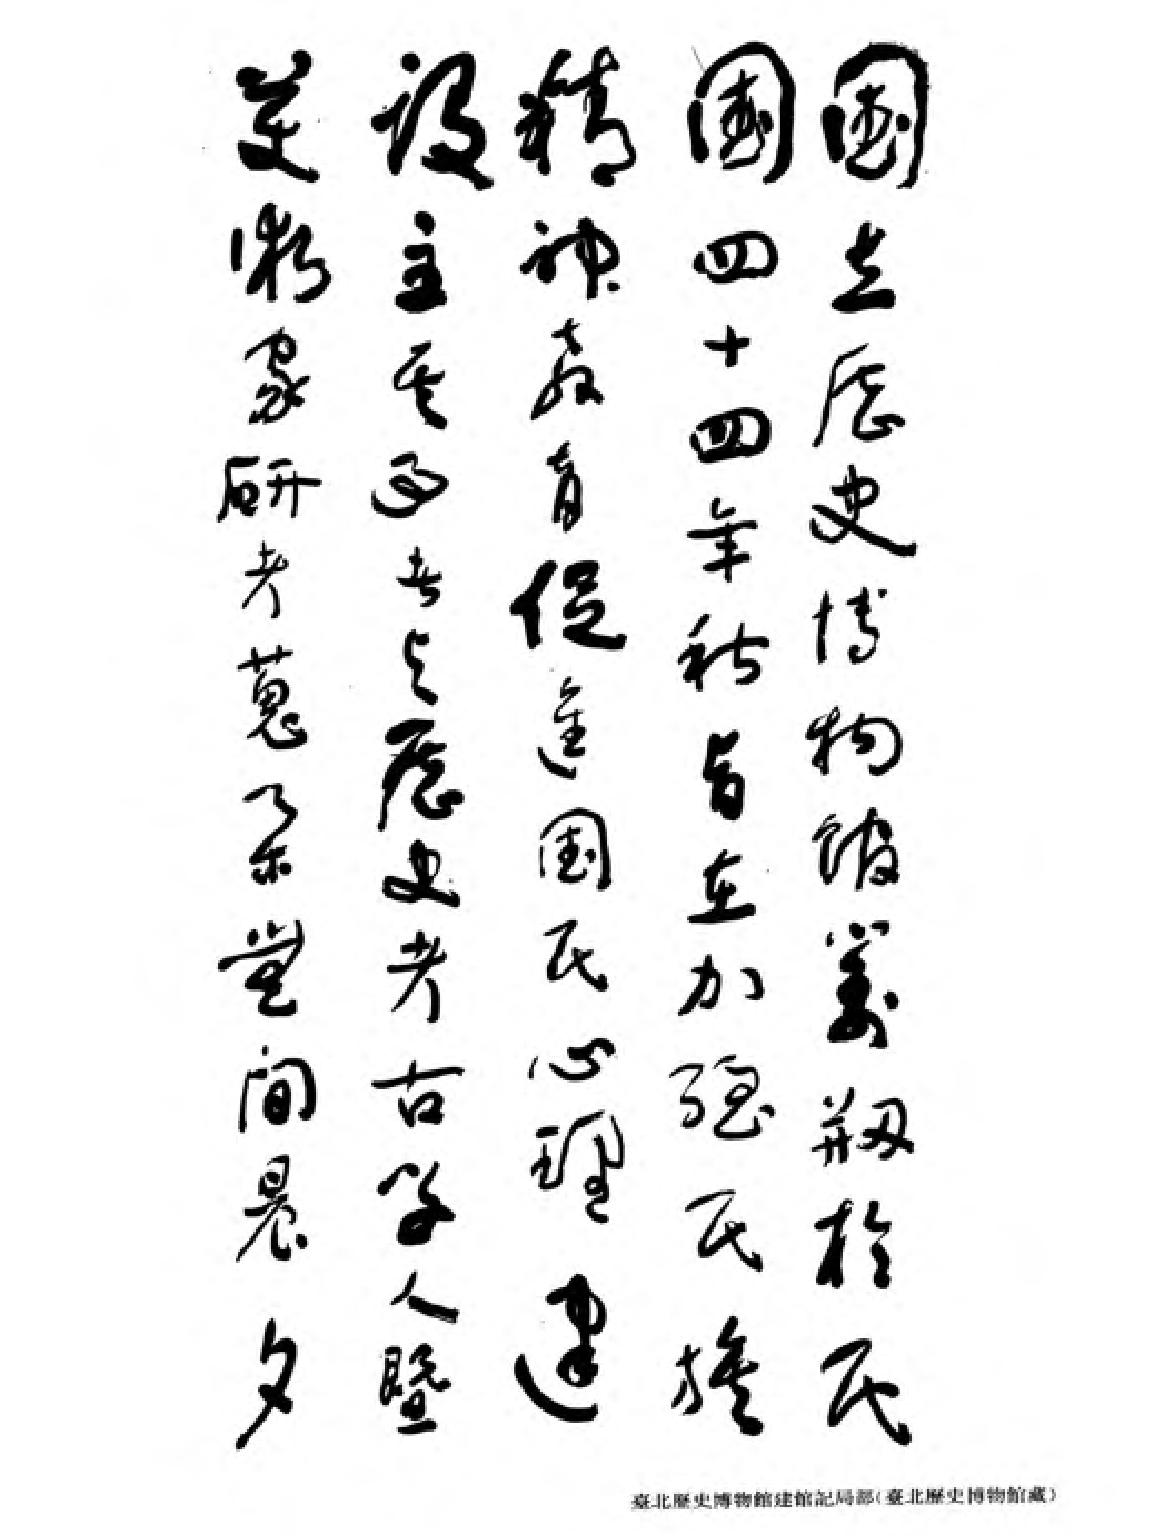 國立歷史博物館籌剏於民
國四十四年秋旨在加強民族
精神教育促進國民心理建
設主其事者與歷史考古學人暨
美術家研考蒐集鑑間晨夕
臺北歷史博物館建館記局部(臺北歷史博物館藏)